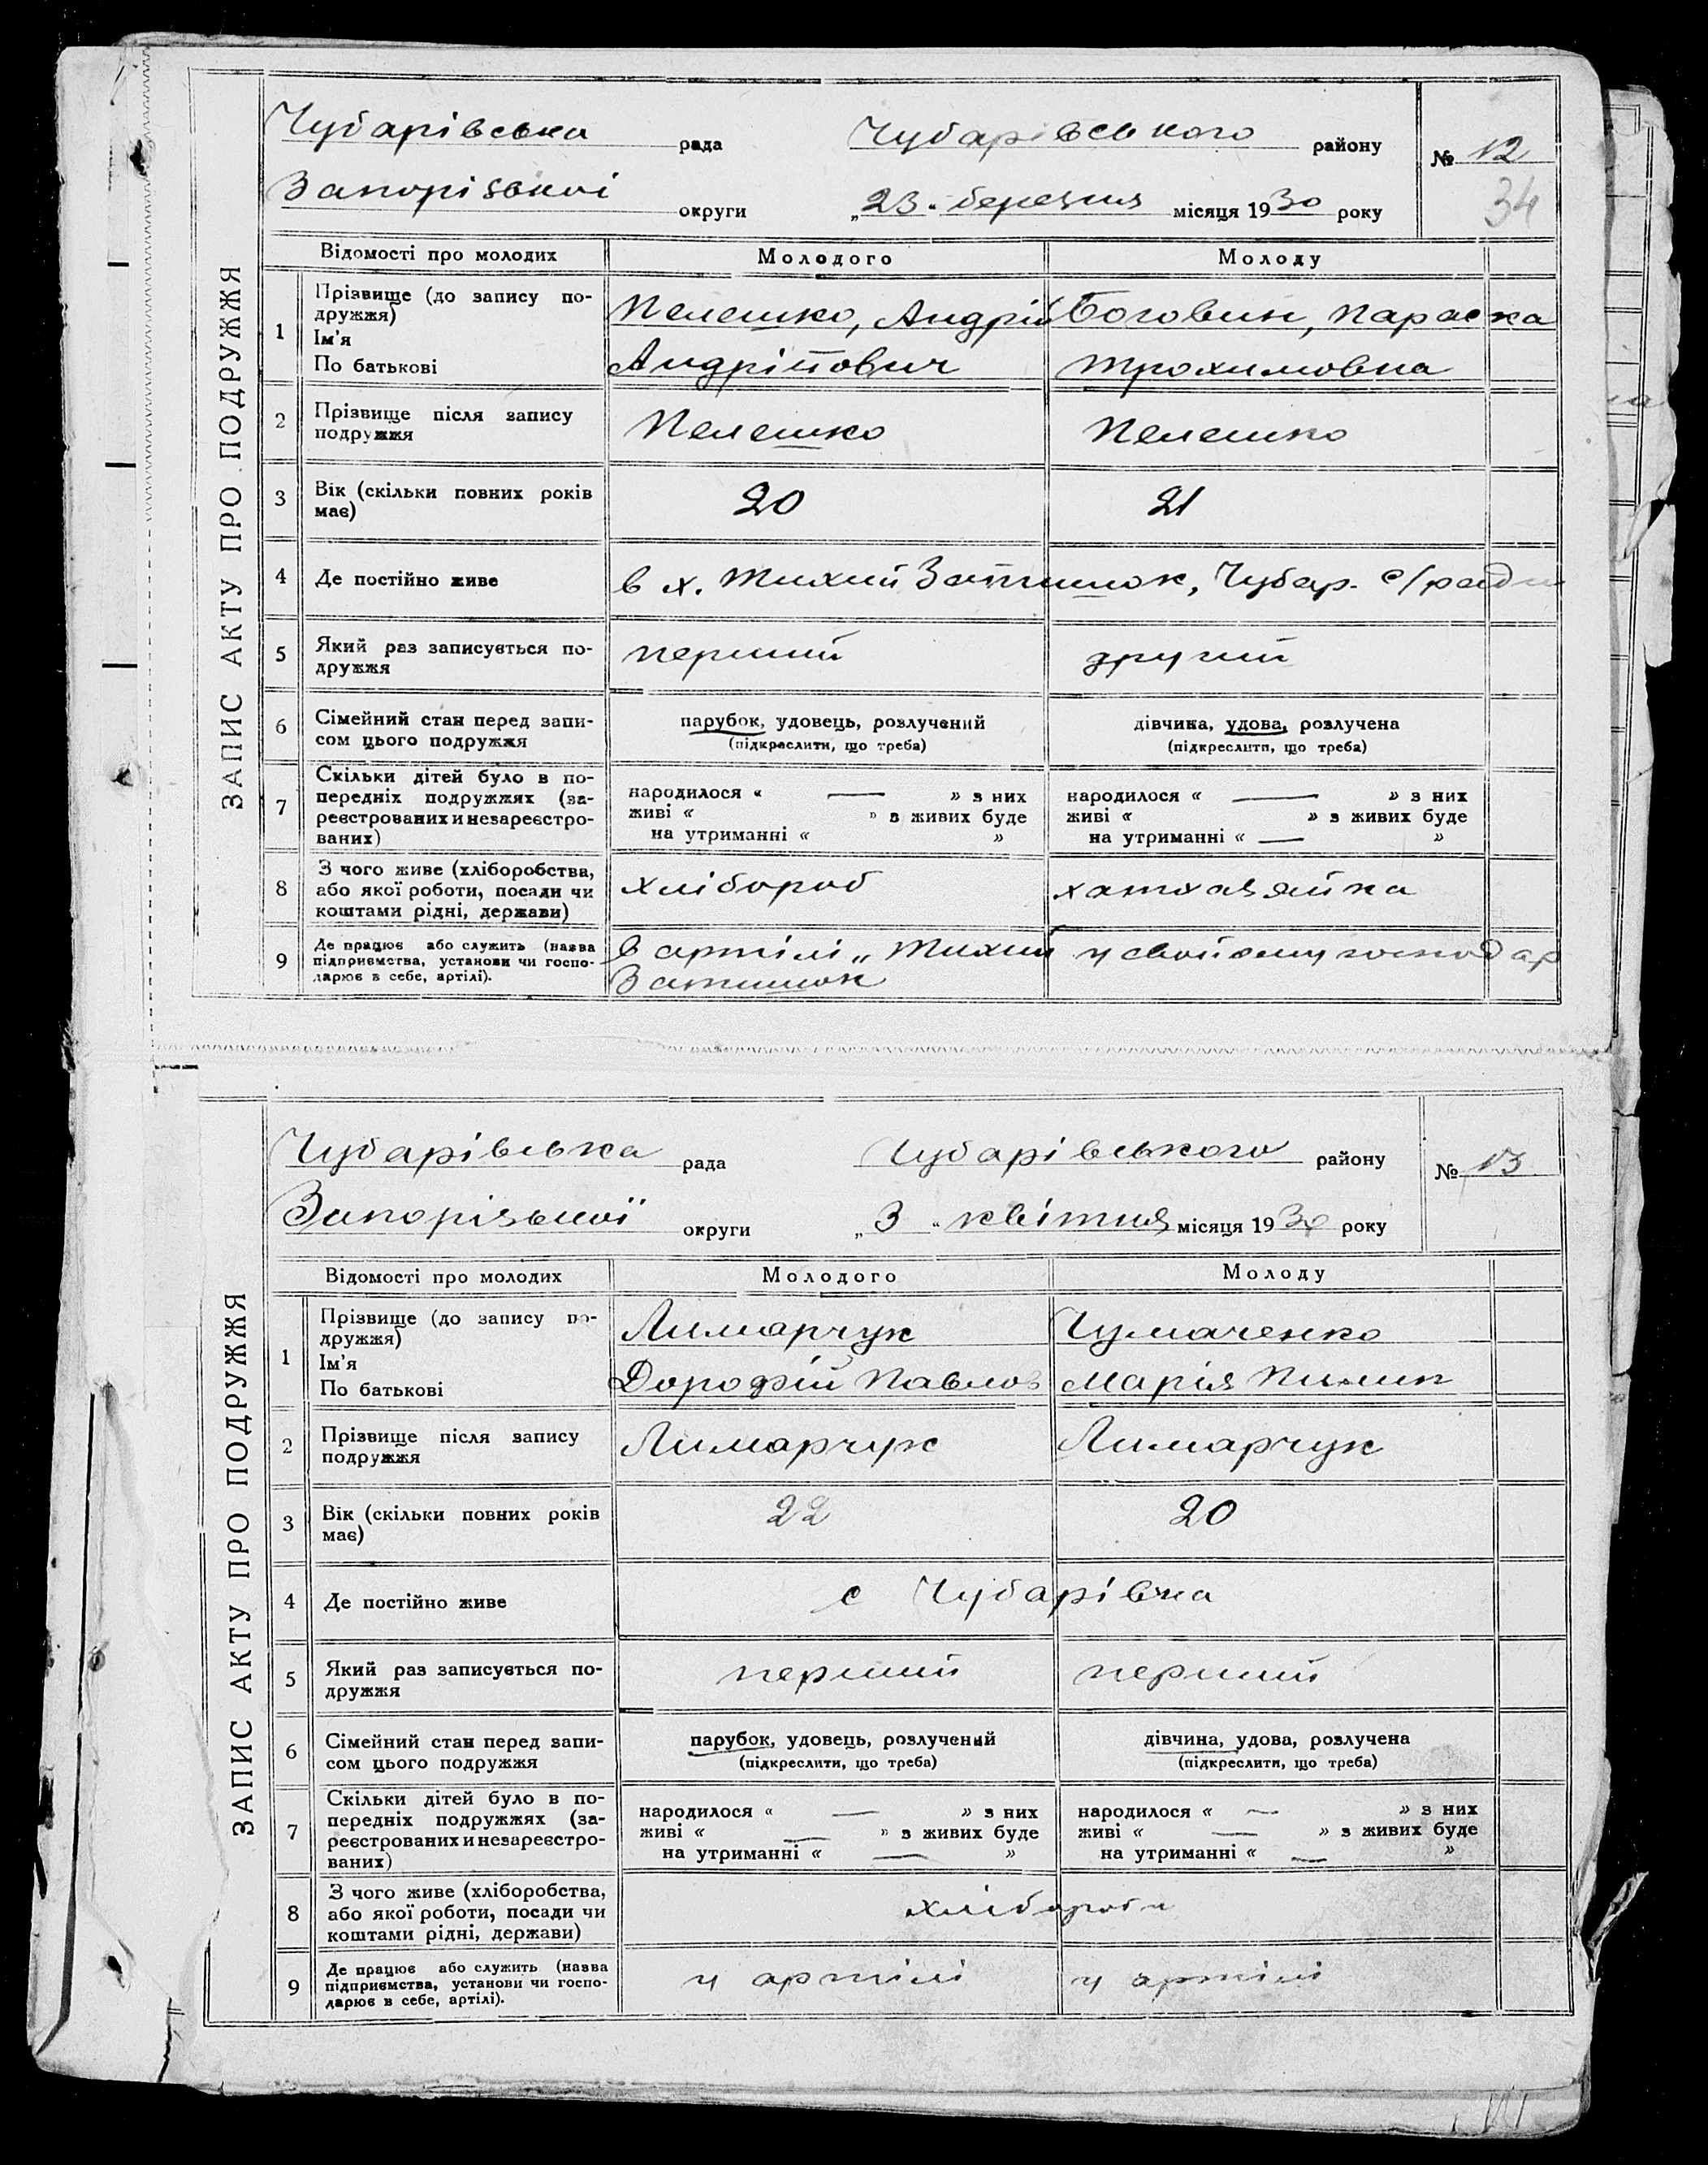 ЗАПИС АКТУ ПРО ПОДРУЖЖЯ
Чубарівська рада Чубарівського району № 12
Запорізької округи „23" березня місяця 1930 року 34
Відомості про молодих Молодого Молоду
1 Прізвище (до запису по-
дружжя)
Ім'я
По батькові
Пелешко, Андрій Боговин, Параска
Андрійович Трохимовна
2 Прізвище після запису
подружжя
Пелешко Пелешко
3 Вік (скільки повних років
має)
20 21
4 Де постійно живе в х. Тихий Затишок, Чубар. с/ради
5 Який раз записується по-
дружжя
перший другий
6 Сімейний стан перед запи-
сом цього подружжя
парубок, удовець, розлучений дівчина, удова, розлучена
(підкреслити, що треба) (підкреслити, що треба)
7 Скільки дітей було в по-
передніх подружжях (за-
реєстрованих и незареєстро-
ваних)
народилося « — » з них народилося « — » з них
живі « » з живих буде живі « » з живих буде
на утриманні « » на утриманні « — »
8 З чого живе (хліборобства,
або якої роботи, посади чи
коштами рідні, держави)
хлібороб хатхазяйка
9 Де працює або служить (назва
підприємства, установи чи госпо-
дарює в себе, артілі).
В артілі „Тихий у свойому господар
Затишок
ЗАПИС АКТУ ПРО ПОДРУЖЖЯ
Чубарівська рада Чубарівського району № 13
Запорізької округи „3" квітня місяця 1930 року
Відомості про молодих Молодого Молоду
1 Прізвище (до запису по-
дружжя)
Ім'я
По батькові
Лимарчук Чумаченко
Дорофій Павлов Марія Пилип
2 Прізвище після запису
подружжя
Лимарчук Лимарчук
3 Вік (скільки повних років
має)
22 20
4 Де постійно живе с Чубарівка
5 Який раз записується по-
дружжя
перший перший
6 Сімейний стан перед запи-
сом цього подружжя
парубок, удовець, розлучений дівчина, удова, розлучена
(підкреслити, що треба) (підкреслити, що треба)
7 Скільки дітей було в по-
передніх подружжях (за-
реєстрованих и незареєстро-
ваних)
народилося « — » з них народилося « — » з них
живі « — » з живих буде живі « — » з живих буде
на утриманні « — » на утриманні « — »
8 З чого живе (хліборобства,
або якої роботи, посади чи
коштами рідні, держави)
хлібороби
9 Де працює або служить (назва
підприємства, установи чи госпо-
дарює в себе, артілі).
у артілі у артілі